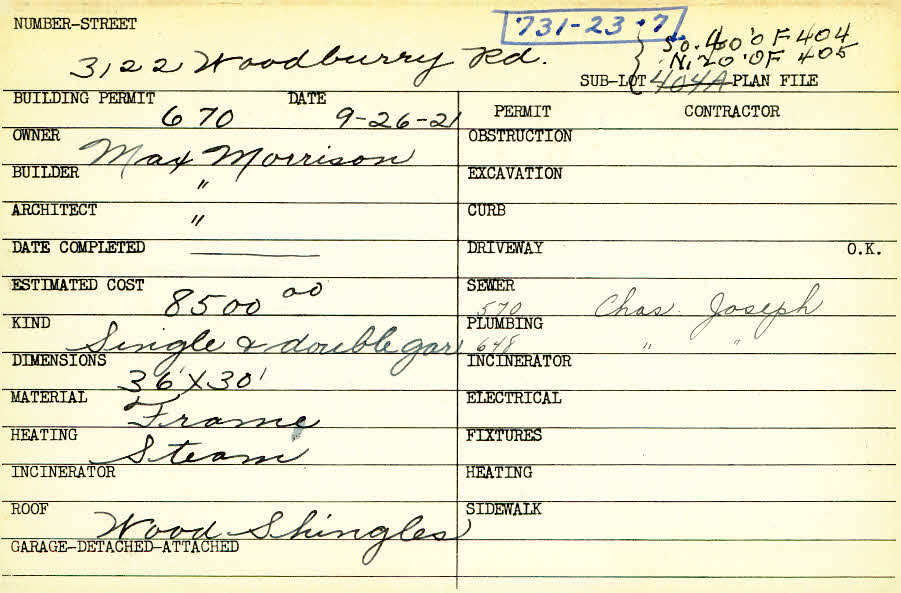 NUMBER-STREET 731-23-7 So. 40'0 OF 404
3122 Woodburry Rd. N. 20'OF 405
SUB-LOT 404A PLAN FILE
BUILDING PERMIT 670 DATE 9-26-21 PERMIT CONTRACTOR
OWNER Max Morrison OBSTRUCTION
BUILDER " EXCAVATION
ARCHITECT " CURB
DATE COMPLETED DRIVEWAY O.K.
ESTIMATED COST 8500 00 SEWER 570 Chas. Joseph
KIND Single & double gar PLUMBING 648 " "
DIMENSIONS 36'X30' INCINERATOR
MATERIAL Frame ELECTRICAL
HEATING Steam FIXTURES
INCINERATOR HEATING
ROOF Wood Shingles SIDEWALK
GARAGE-DETACHED-ATTACHED